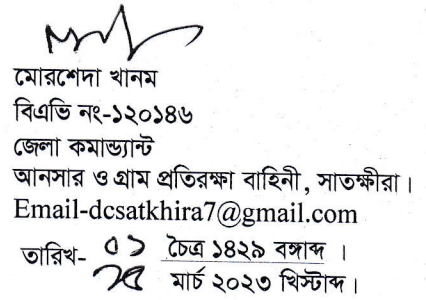 মোরশেদা খানম
বিএভি নং-১২০১৪৬
জেলা কমান্ড্যান্ট
আনসার ও গ্রাম প্রতিরক্ষা বাহিনী, সাতক্ষীরা।
Email-dcsatkhira7@gmail.com
তারিখ- ০১ চৈত্র ১৪২৯ বঙ্গাব্দ ।
মার্চ ২০২৩ খিস্টাব্দ।